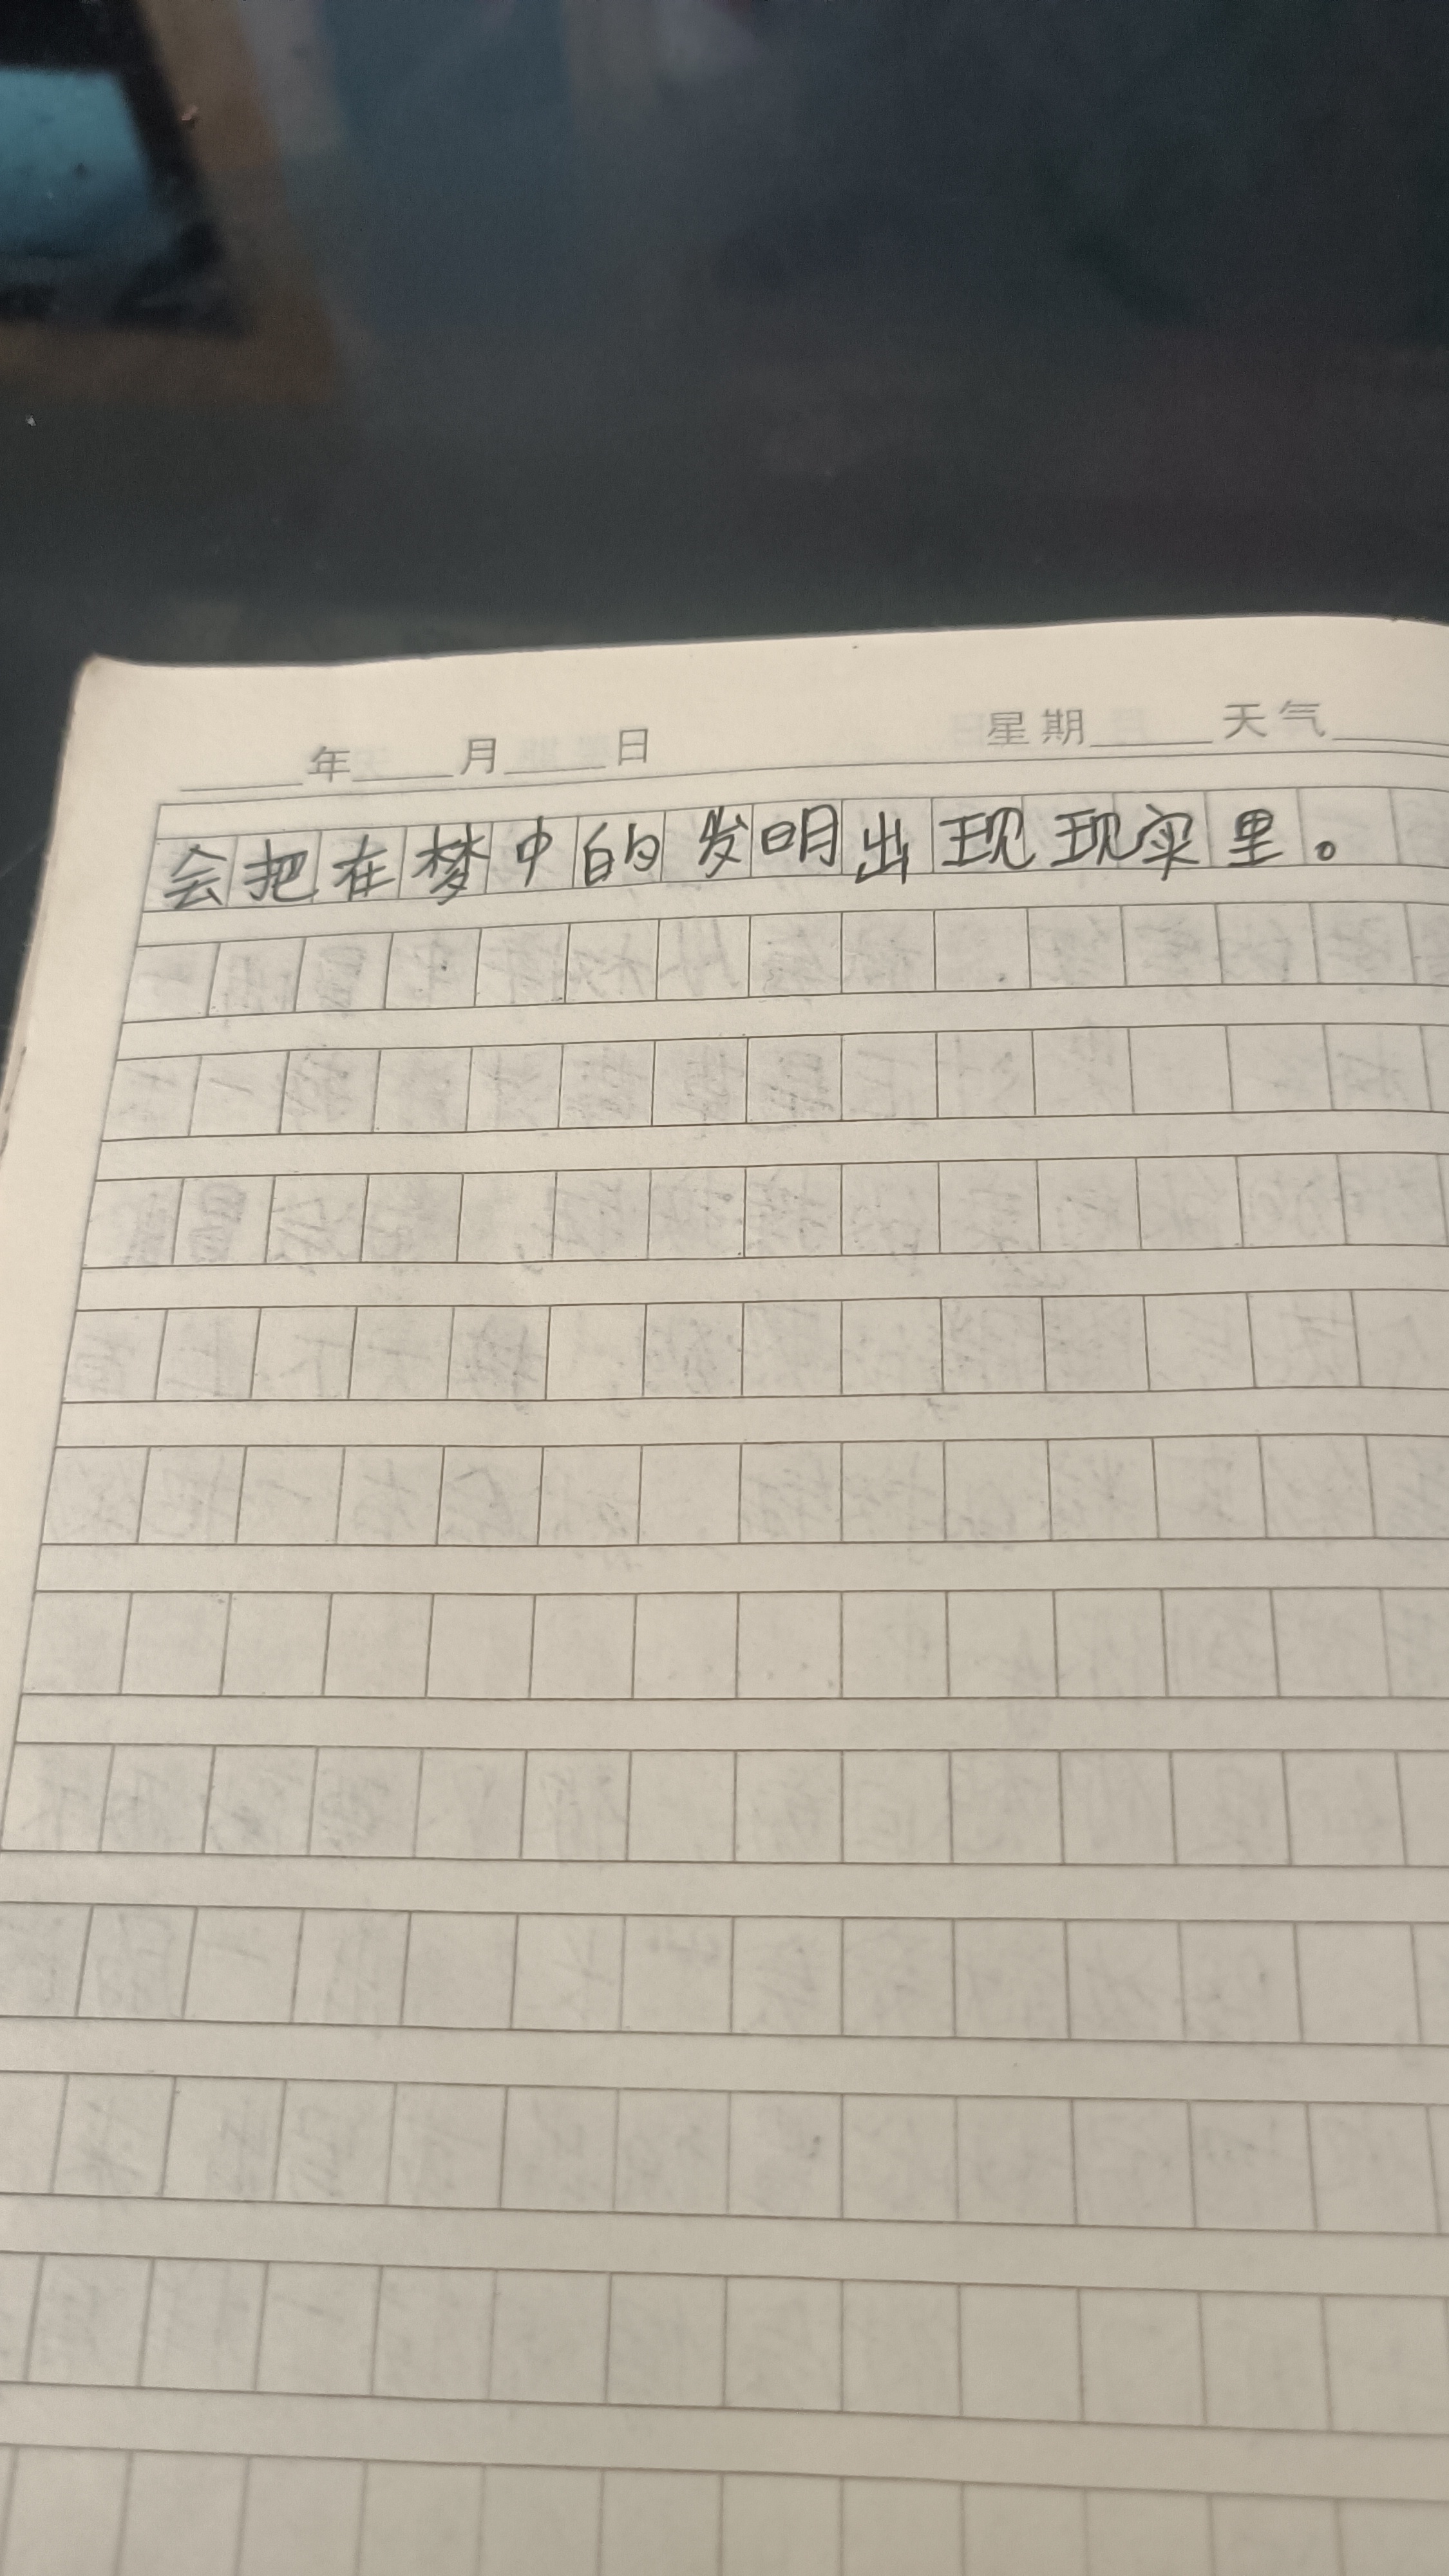 ____年____月____日 星期____天气____
会把在梦中的发明出现现实里。